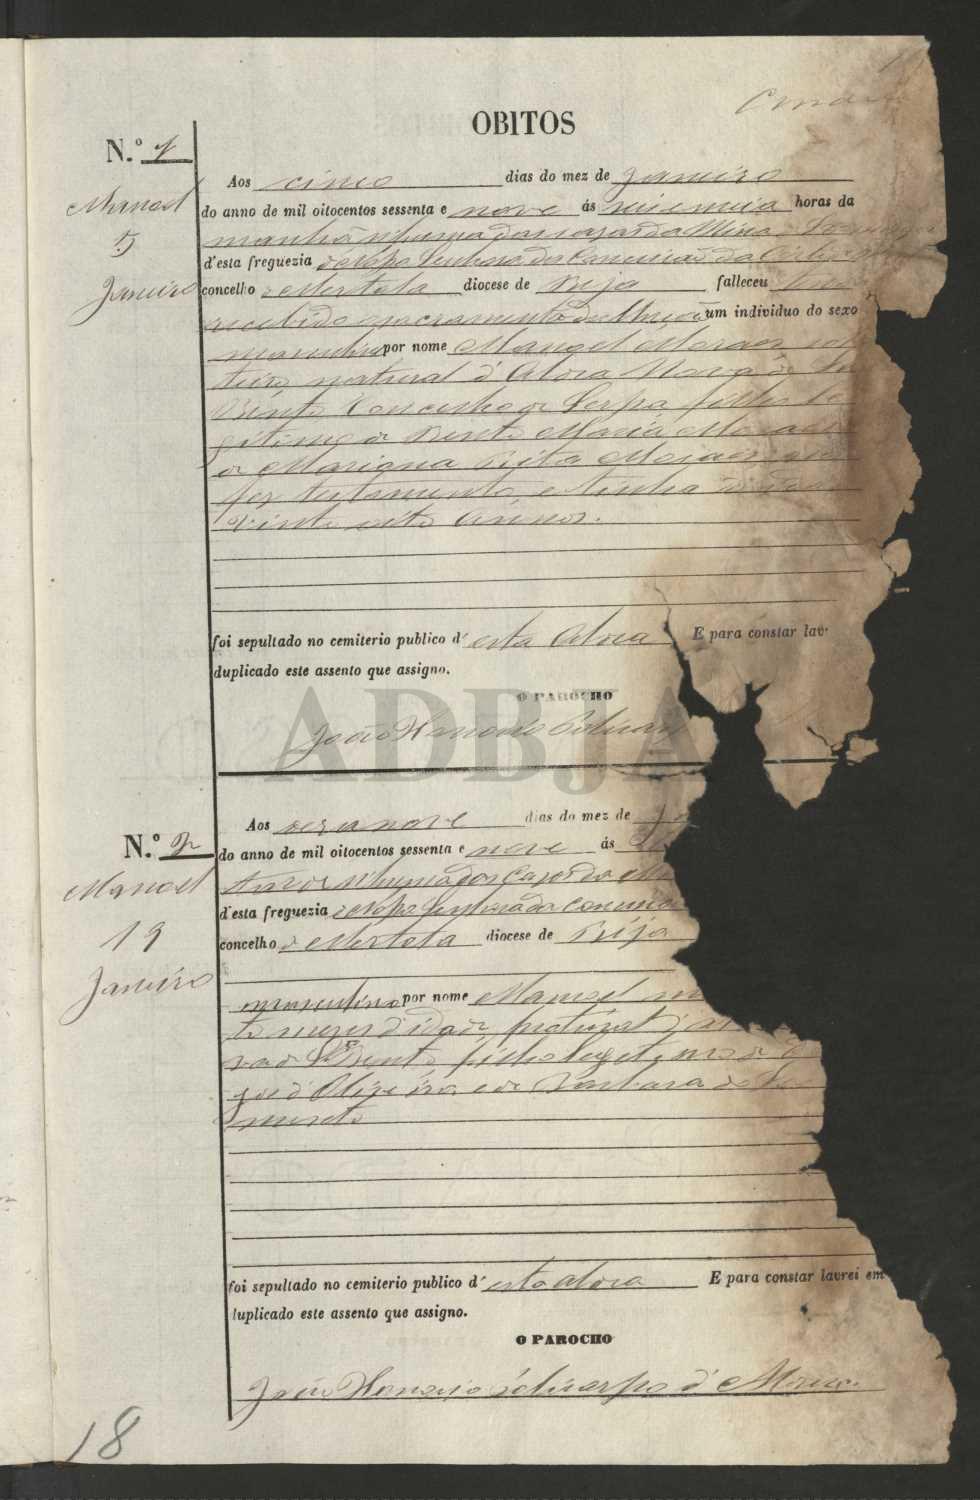 OBITOS
N.º 1
Manoel
5
Janeiro
Aos cinco dias do mez de Janeiro
do anno de mil oitocentos sessenta e nove ás seis e meia horas da
manhã n'huma das casas da Mina de S. Domingos
d'esta freguezia de Nossa Senhora da Conceição da
concelho de Mertola diocese de Beja falleceu
recebido o sacramento da um individuo do sexo
masculino por nome Manoel Moraes sol
teiro natural d'Aldea Nova de São
Bento Concelho de Serpa filho le
gitimo de Bento Maria Moraes
de Marianna Rita Moraes não
fez testamento e tinha
vinte oito annos.
foi sepultado no cemiterio publico d'esta Aldea E para constar lav
duplicado este assento que assigno.
O PAROCHO
João Honorio Policar
ADBJA
N.º 2
Manoel
19
Janeiro
Aos dezanove dias do mez de Ja
do anno de mil oitocentos sessenta e nove ás
tarde n'huma das casas da Mi
d'esta freguezia de Nossa Senhora da Conceição
concelho de Mertola diocese de Beja
masculino por nome Manoel
to mezes d'idade, natural d'
va de S. Bento, filho legitimo de
d'Oliveira e de Barbara do
mento
foi sepultado no cemiterio publico d'esta aldea E para constar lavrei em
duplicado este assento que assigno.
O PAROCHO
João Honorio Policarpo d'
18